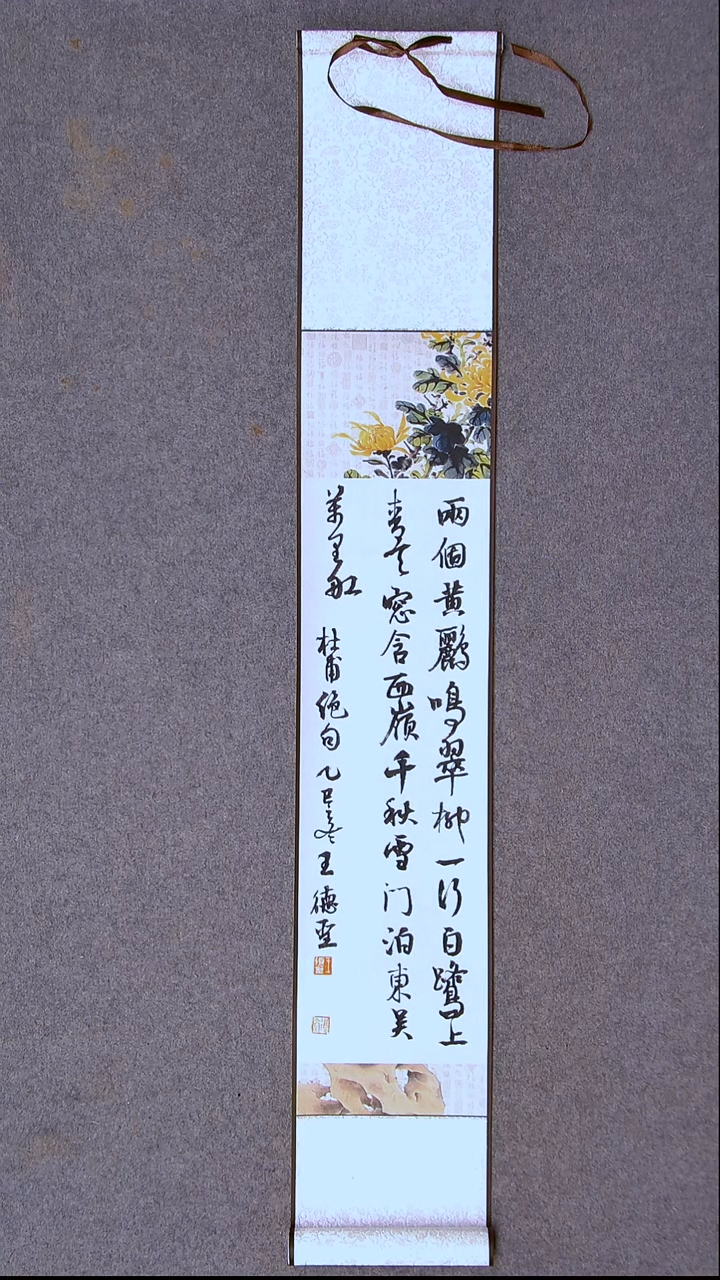 兩個黃鸝鳴翠柳一行白鷺上
青天窓含西嶺千秋雪门泊東吴
萬里船 杜甫绝句 乙巳冬 王德聖